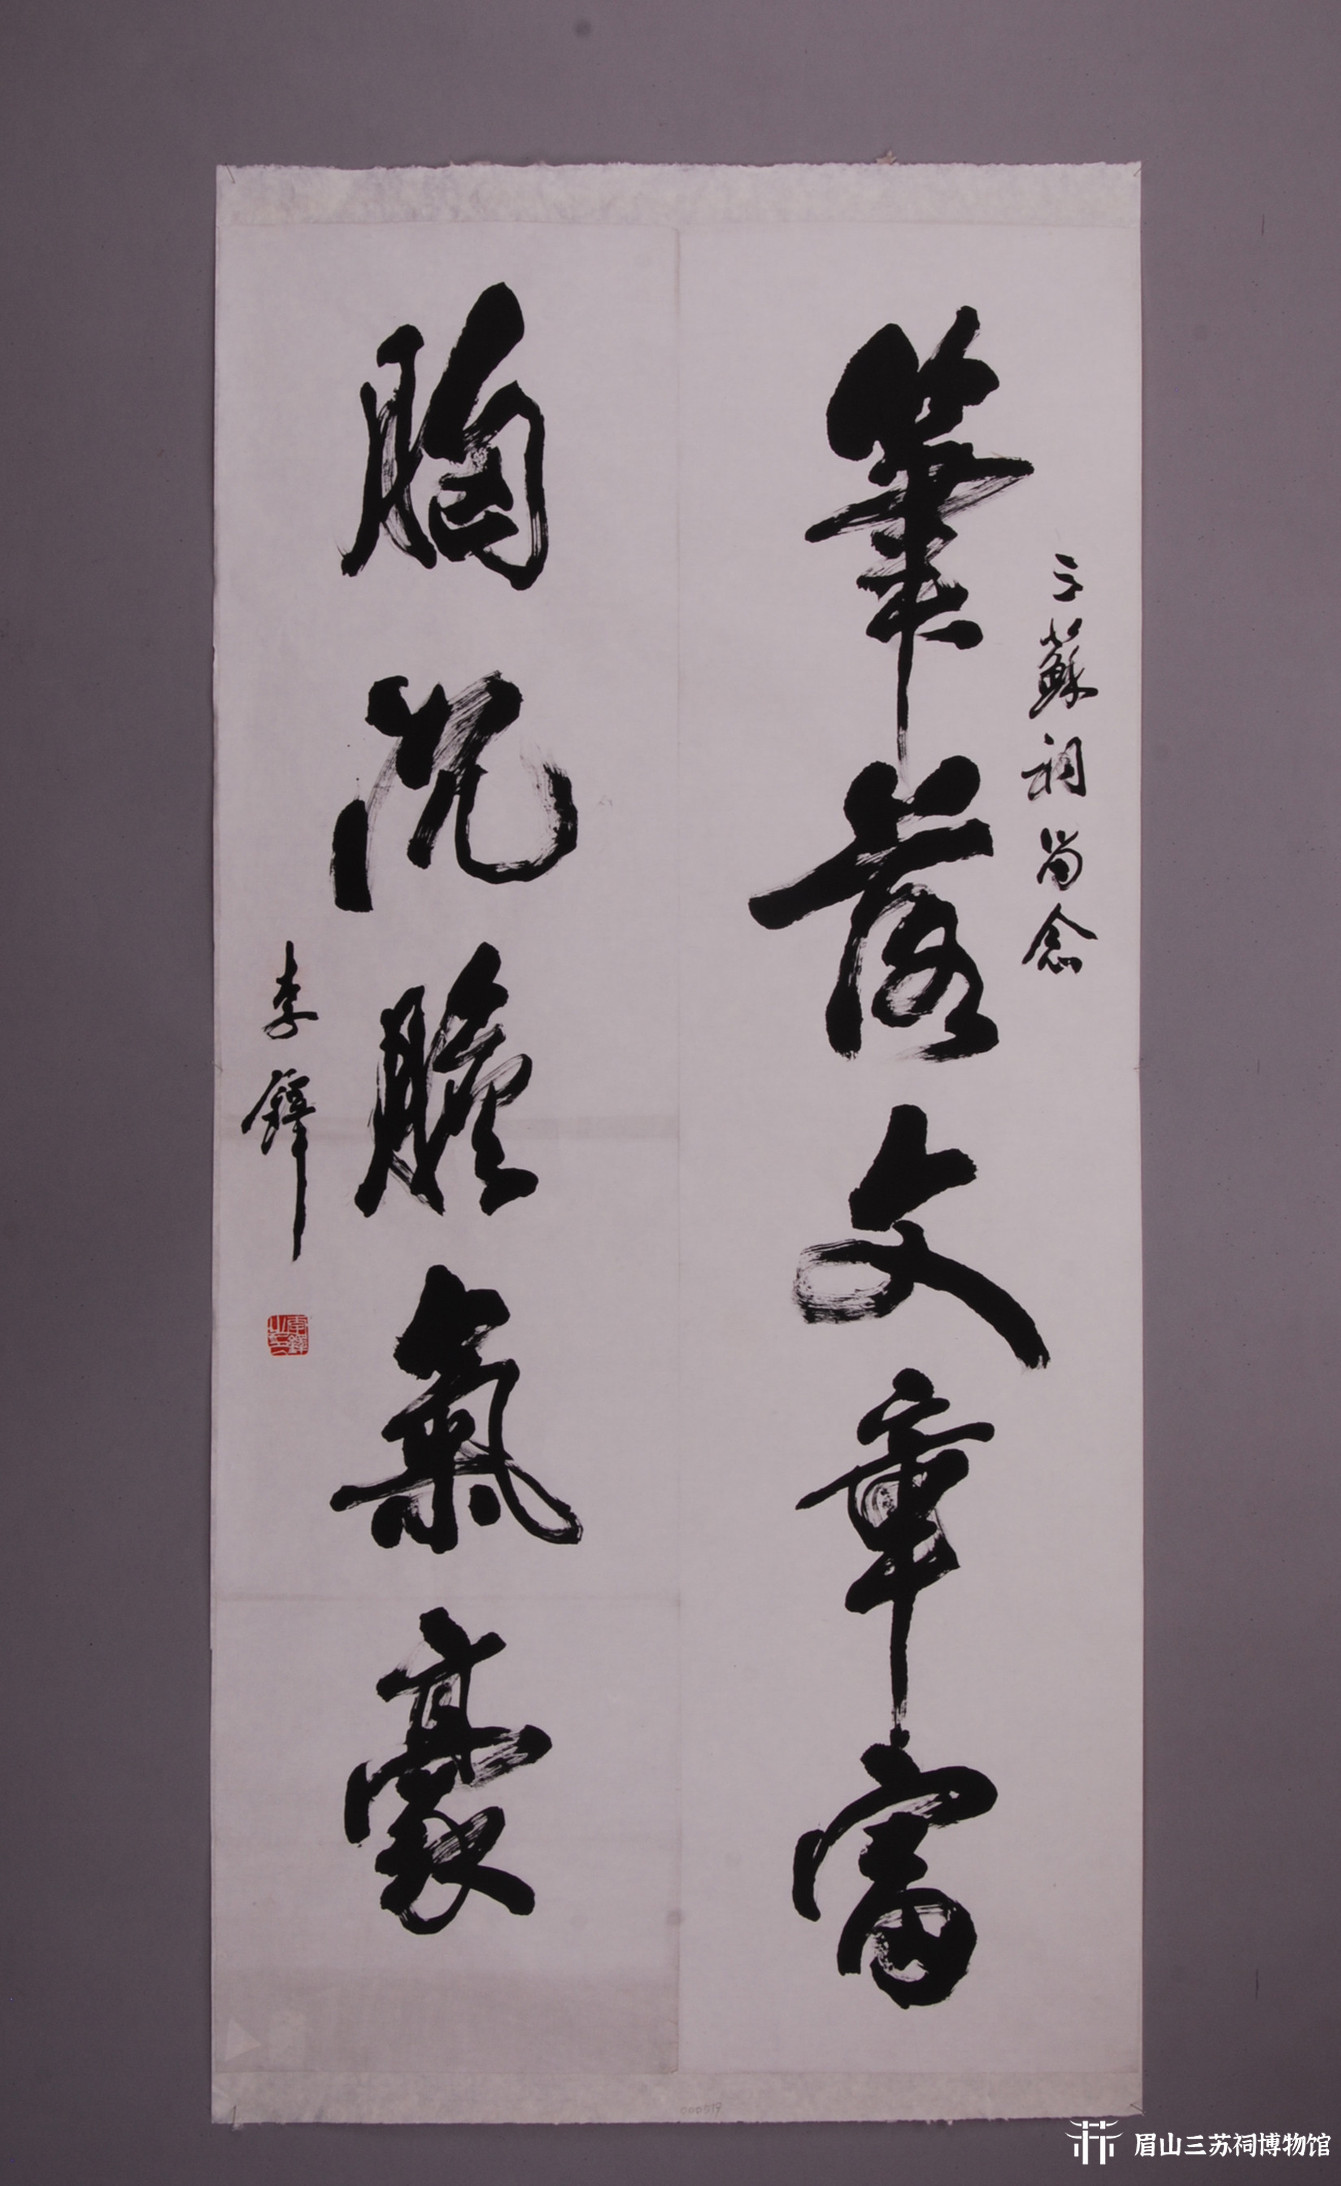 三蘇祠留念
筆落文章富
胸沉膽氣豪
李鐸
李鐸之印
000519
眉山三苏祠博物馆